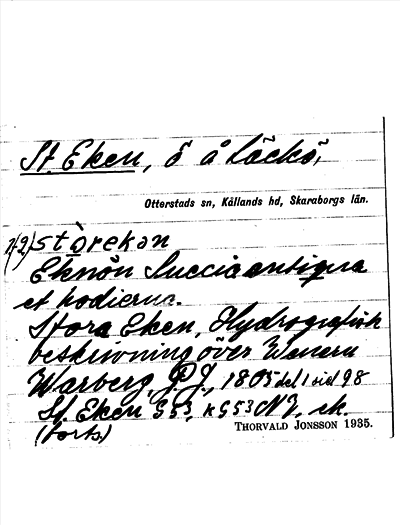 St. Eken, ö å Läckö,
Otterstads sn, Kållands hd, Skaraborgs län.
1)(2) stơrekən
Eknön Suecia antiqua
et hodierna.
Stora Eken, Hydrografisk
beskrivning över Wenern
Warberg, P.J., 1805 del 1 sid 98
St. Eken G53, KG53 NV, ek.
(forts)
THORVALD JONSSON 1935.